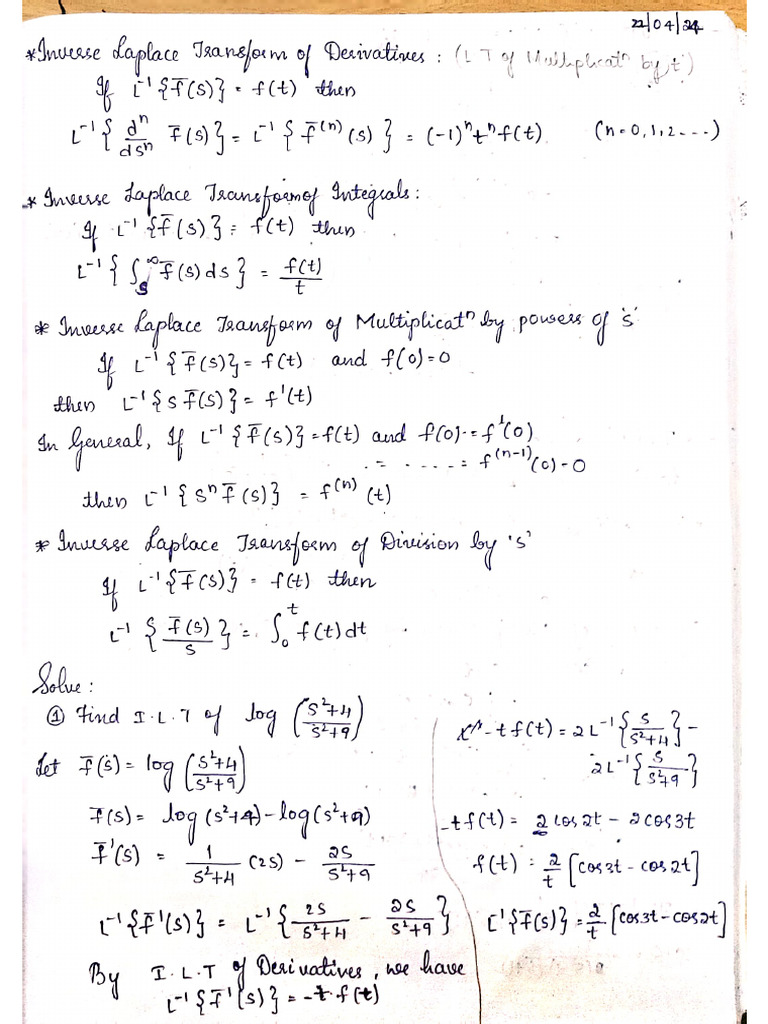 22/04/24
*Inverse Laplace Transform of Derivatives : (LT of Multiplicatⁿ by t)
If L⁻¹{f̄(s)} = f(t) then
L⁻¹{dⁿ/dsⁿ f̄(s)} = L⁻¹{f̄⁽ⁿ⁾(s)} = (-1)ⁿtⁿf(t) (n=0,1,2----)
* Inverse Laplace Transform of Integrals:
If L⁻¹{f̄(s)} = f(t) then
L⁻¹{∫ₛ^∞ f̄(s)ds} = f(t)/t
* Inverse Laplace Transform of Multiplicatⁿ by powers of 's'
If L⁻¹{f̄(s)} = f(t) and f(0)=0
then L⁻¹{s f̄(s)} = f'(t)
In General, If L⁻¹{f̄(s)} = f(t) and f(0) = f'(0)
= ..... = f⁽ⁿ⁻¹⁾(0) = 0
then L⁻¹{sⁿ f̄(s)} = f⁽ⁿ⁾(t)
* Inverse Laplace Transform of Division by 's'
If L⁻¹{f̄(s)} = f(t) then
L⁻¹{f̄(s)/s} = ∫₀ᵗ f(t)dt
Solve:
① Find I.L.T of log (s²+4/s²+9)
Let f̄(s) = log (s²+4/s²+9)
f̄(s) = log(s²+4) - log(s²+9)
f̄'(s) = 1/s²+4 (2s) - 2s/s²+9
L⁻¹{f̄'(s)} = L⁻¹{2s/s²+4 - 2s/s²+9}
By I.L.T of Derivatives, we have
L⁻¹{f̄'(s)} = -t·f(t)
-tf(t) = 2L⁻¹{s/s²+4} -
2L⁻¹{s/s²+9}
-tf(t) = 2cos2t - 2cos3t
f(t) = 2/t [cos3t - cos2t]
L⁻¹{f̄(s)} = 2/t [cos3t - cos2t]